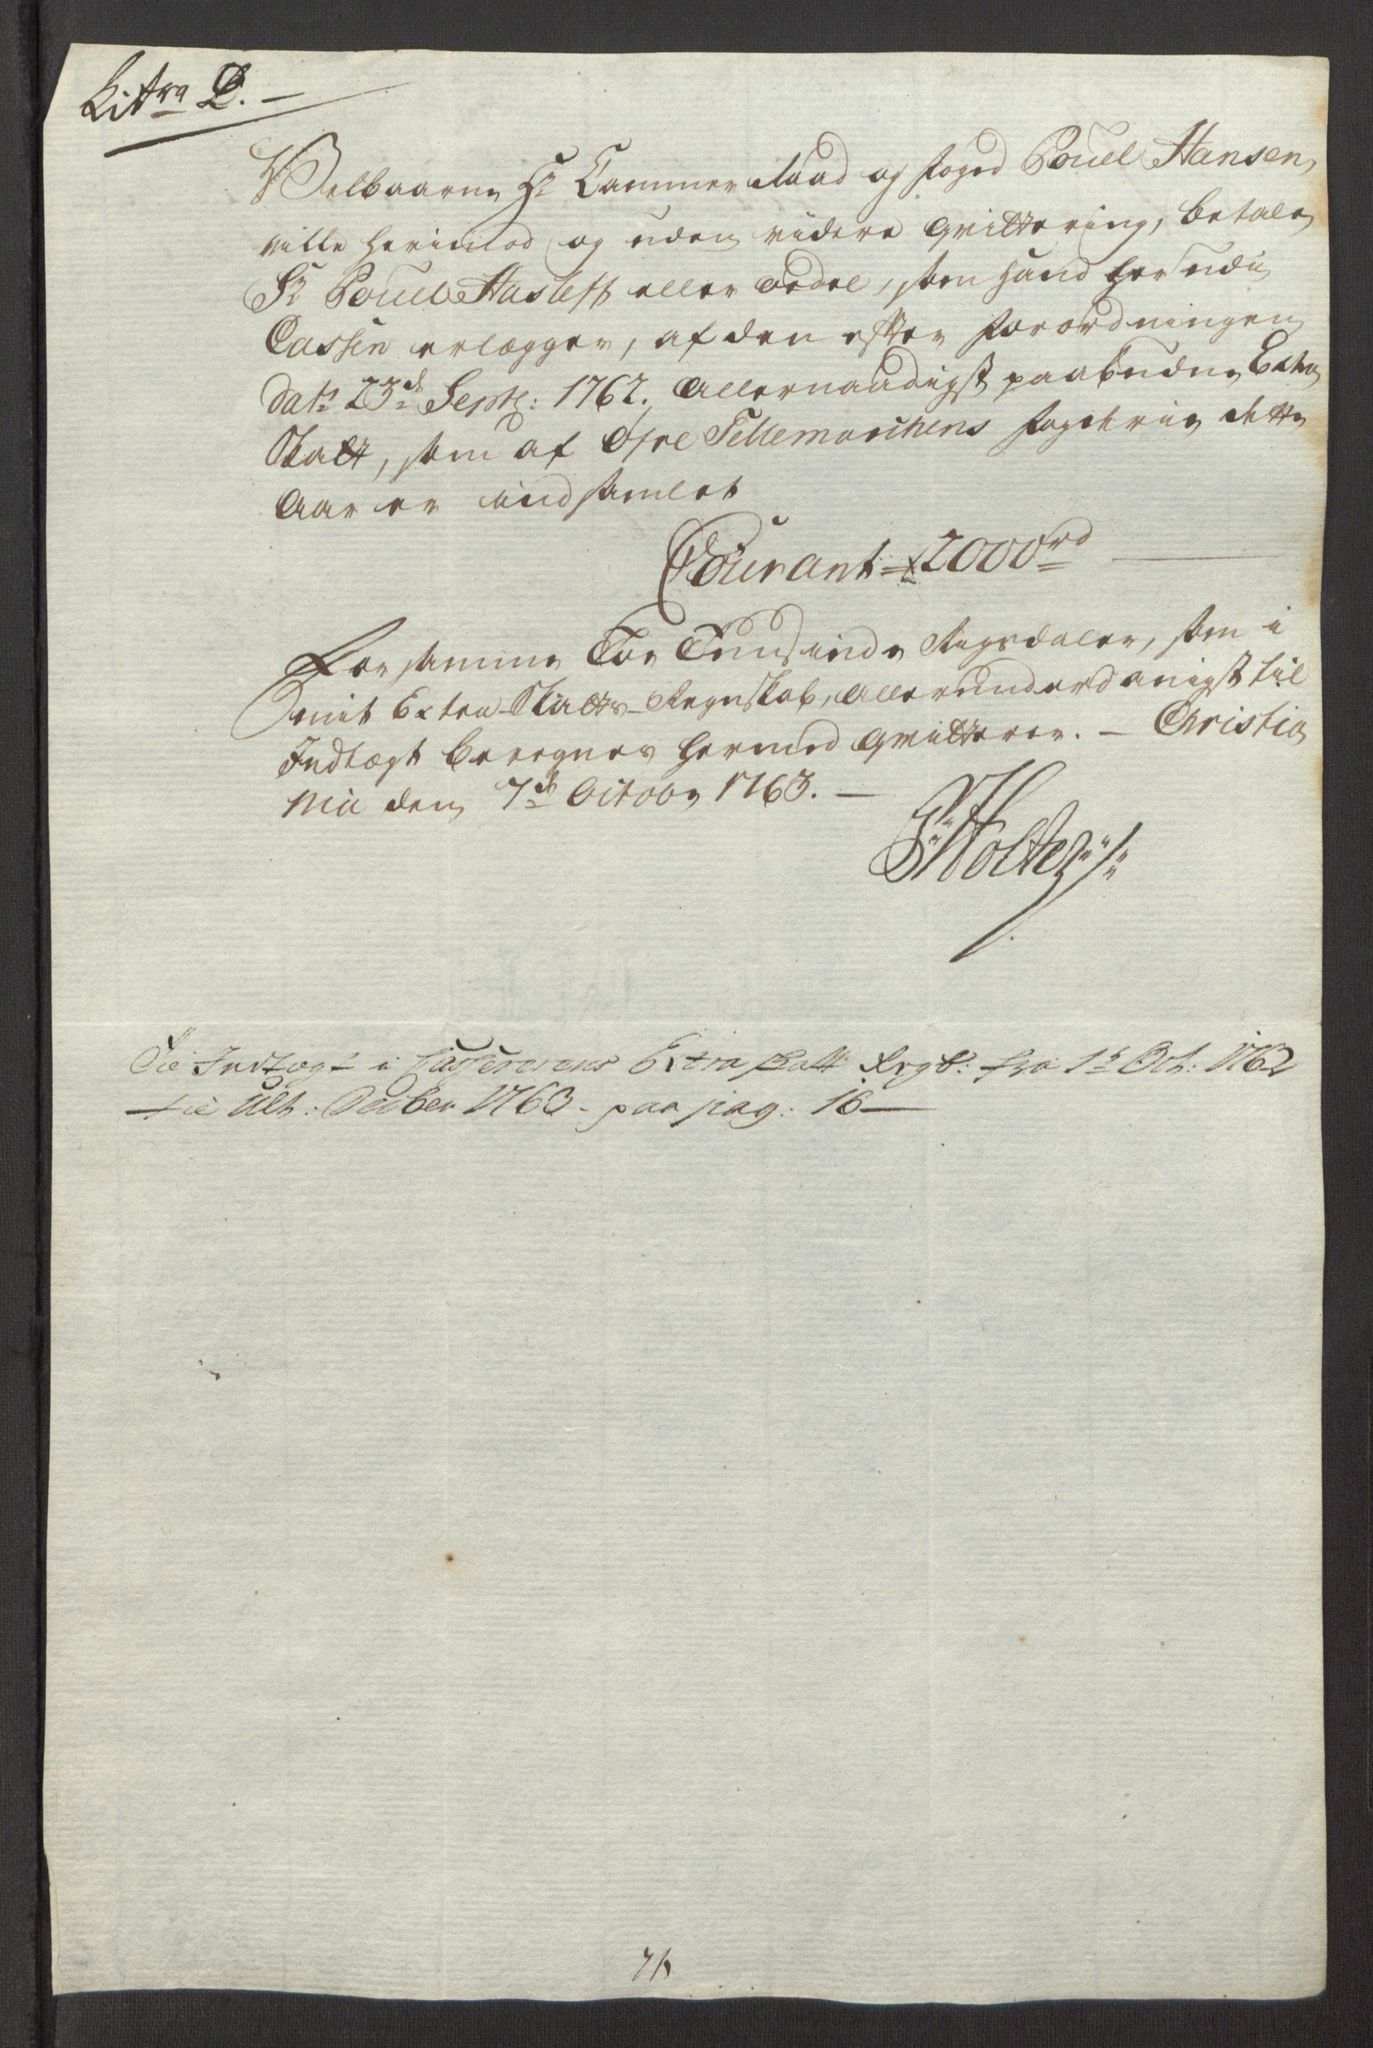 Litra D. —
Velbaarne Hr Cammer Raad og foged Pouel Hansen,
ville herimod og uden videre qvittering, betale
Sr Pouel Hasleff eller ordre, som hand her udi
Cassen erlægger, af den efter forordningen
dat: 23de Septe: 1762. Allernaadigst paabudne Extra
Skatt, som af Øfre Tellemarchens fogderie dette
Aar er indsamlet
Courant = 2000 rd —
For samme Toe Tuusinde Rigsdaler, som i
mit Extra Skatts Regnskab, Allerunderdanigst til
Indtægt beregnes hermed qvitterer. — Christia
nia den 7de Octobr 1763. —
Holter
Til Indtægt i Casserernes Extra skatt Regb: fra 1te Oct: 1762
til Ult: Decber 1763 - paa pag: 16 —